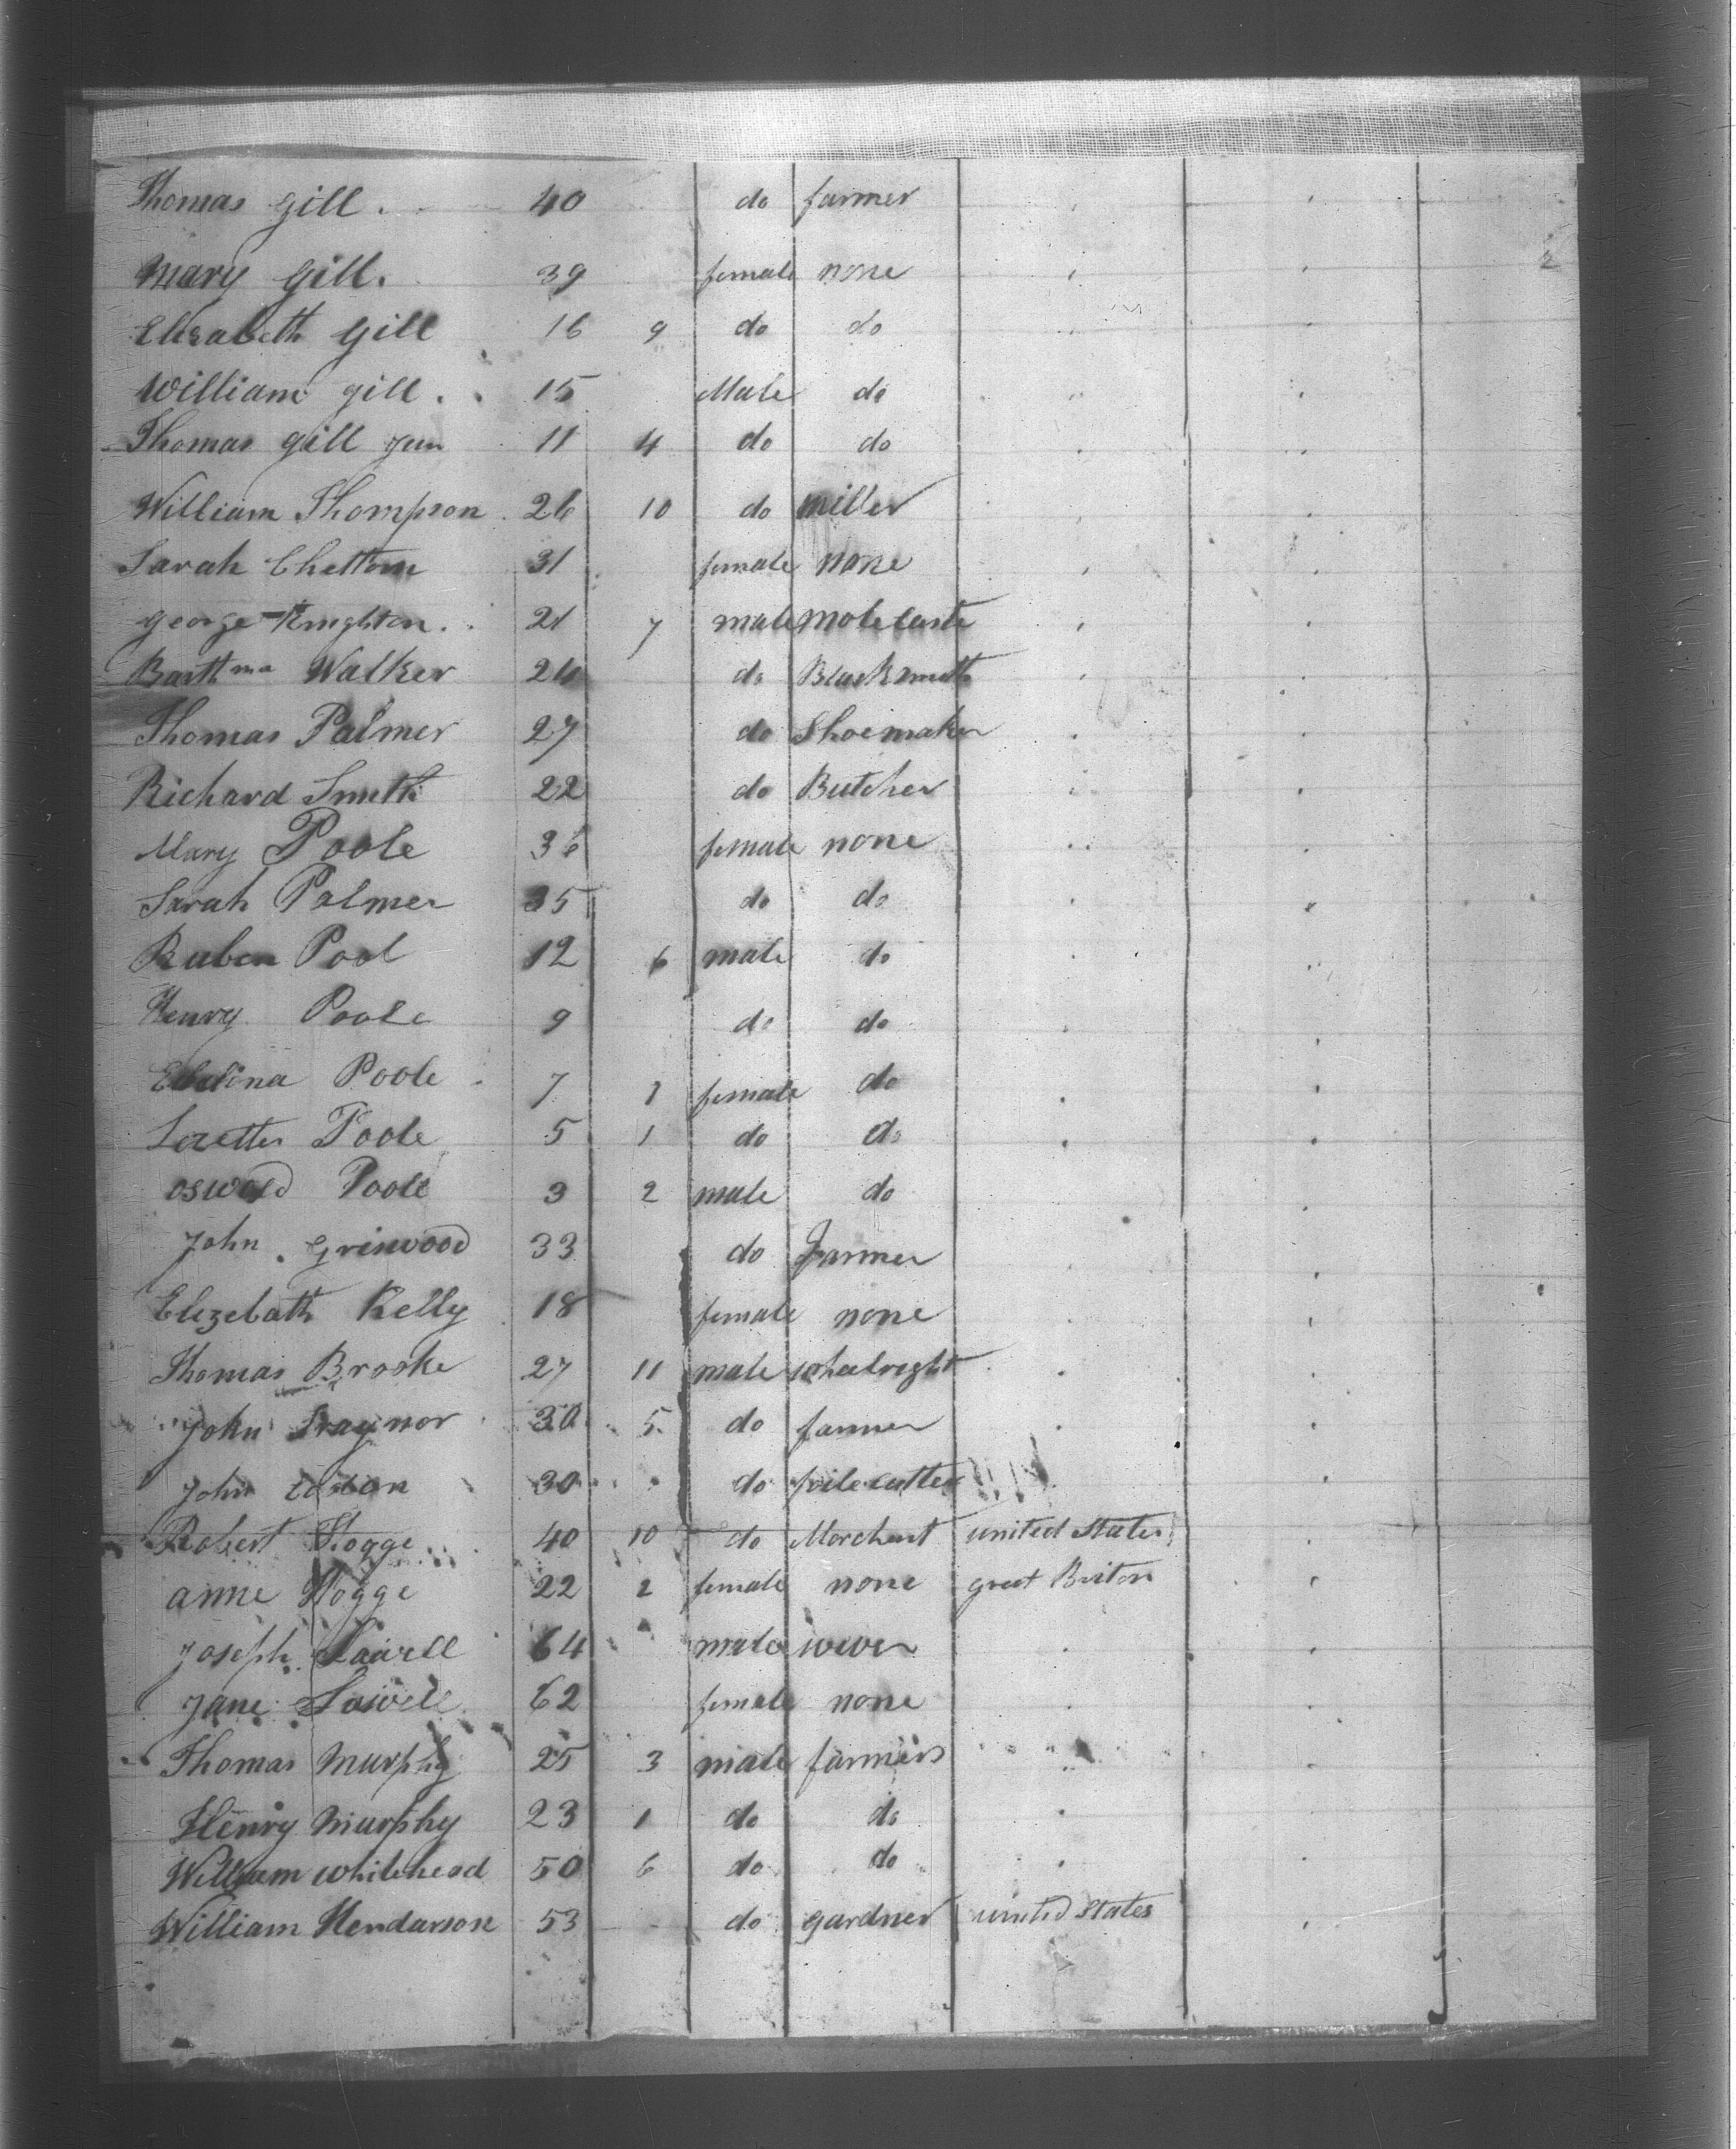 Thomas Gill . 40 do farmer
Mary Gill . 39 female none 2
Elizabeth Gill 16 9 do do
William Gill . 15 Male do
Thomas Gill Jun 11 4 do do
William Thompson 26 10 do Miller
Sarah 31 female none
George Knighton . 21 7 male
Barthma Walker 24 do Blacksmith
Thomas Palmer 27 do Shoemaker
Richard Smith 22 do Butcher
Mary Poole 36 female none
Sarah Palmer 35 do do
Ruben Pool 12 6 male do
Henry Poole 9 do do
Poole 7 1 female do
Poole 5 1 do do
Oswold Poole 3 2 male do
John Griswood 33 do Farmer
Elezebath Kelly 18 female none
Thomas Brooke 27 11 male whelright
John Traynor 30 5 do farmer
John 30 do
Robert Hogge 40 10 do Merchent united States
anne Hogge 22 2 female none great Briton
Joseph 64 male wever
Jane 62 female none
Thomas Murphy 25 3 male farmers
Henry Murphy 23 1 do do
William whitehead 50 6 do do
William Hendarson 53 do gardner united States